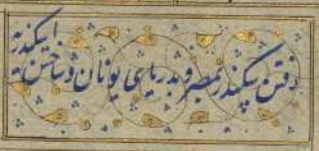 رفتن سکندر بمصر و بدریای یونان و ساختن اسکندریه